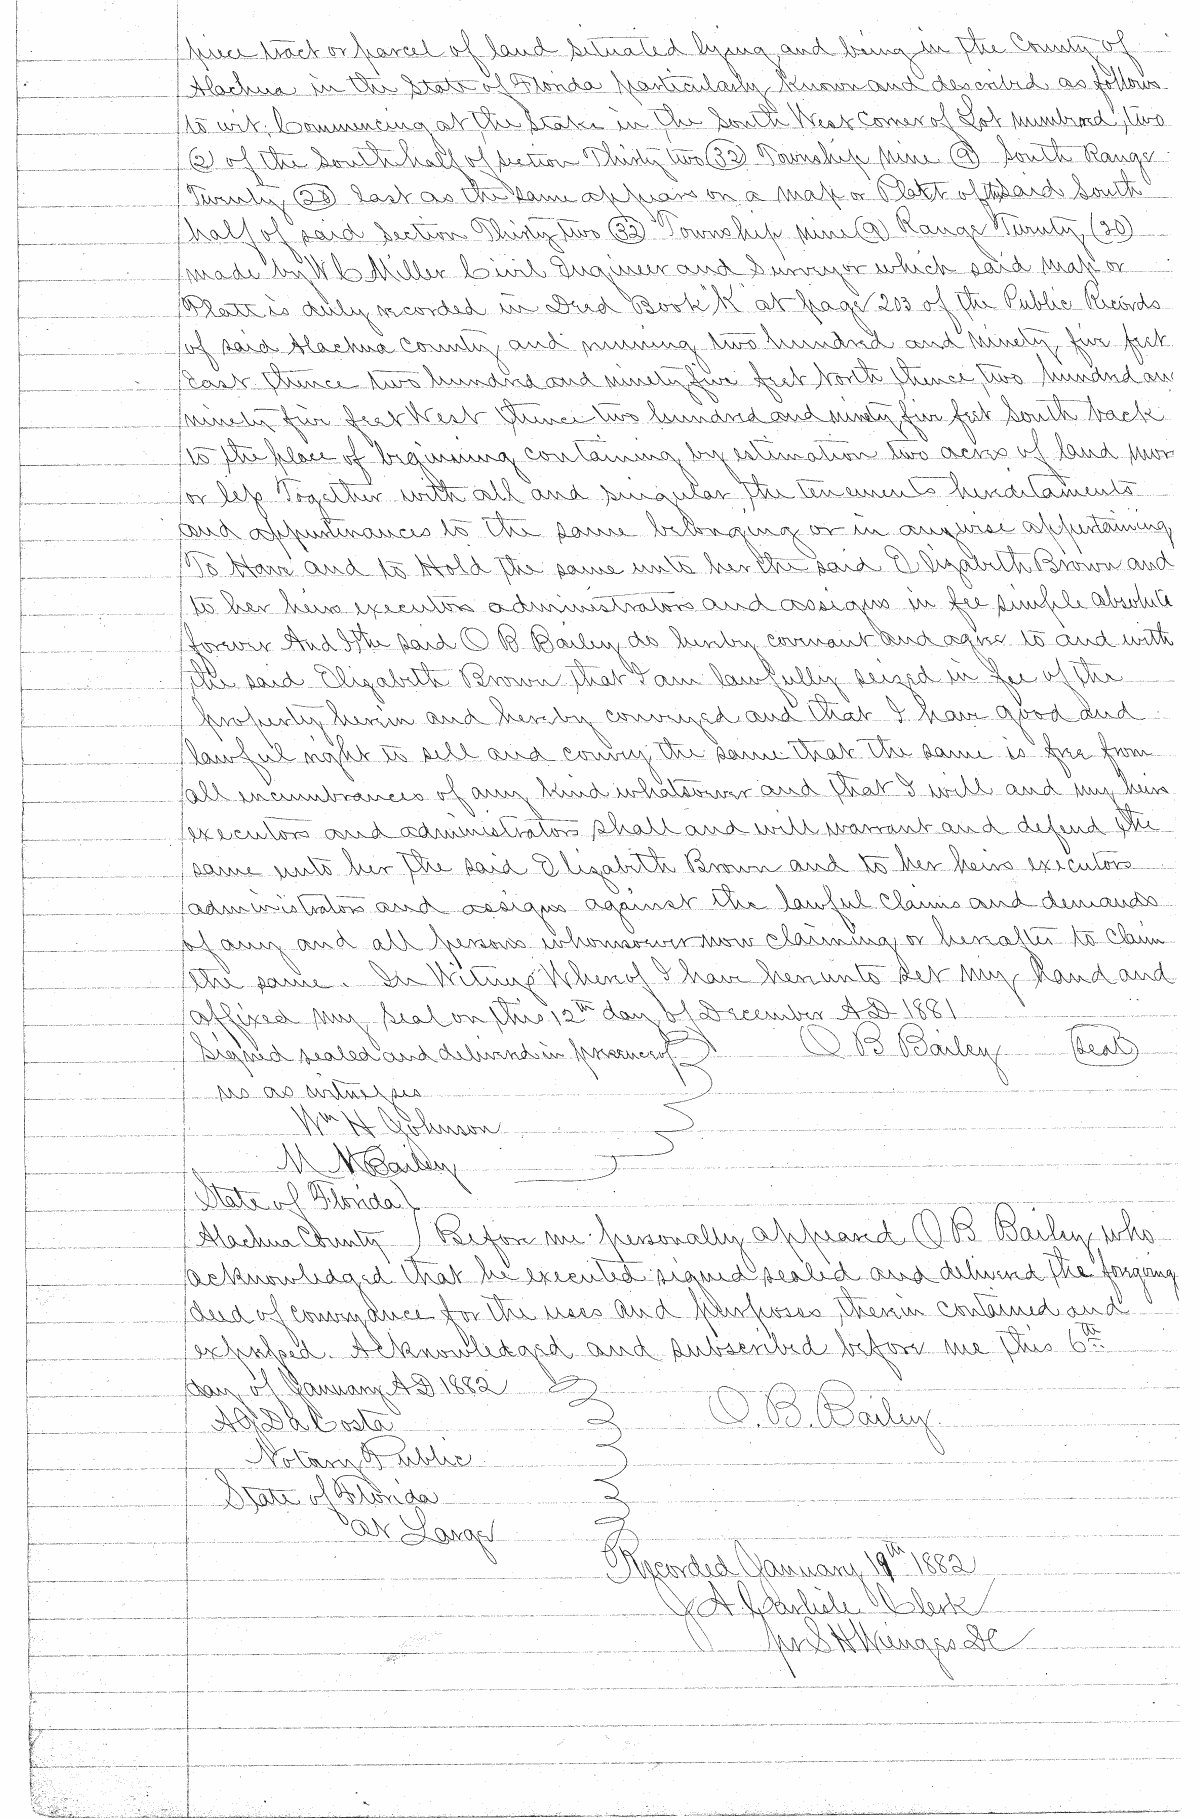 piece tract or parcel of land situated lying and being in the County of
Alachua in the State of Florida particularly known and described as follows
to wit; Commencing at the Stake in the South West Corner of Lot numbered, two
(2) of the South half of section Thirty two (32) Township nine (9) South Range
Twenty (20) East as the same appears on a map or Platt of the said South
half of said Section Thirty two (32) Township nine (9) Range Twenty (20)
made by W C Miller Civil Engineer and Surveyor which said map or
Platt is duly recorded in Deed Book "K" at page 203 of the Public Records
of said Alachua County and running two hundred and ninety five feet
East thence two hundred and ninety five feet North thence two hundred an
ninety five feet West thence two hundred and ninety five feet South back
to the place of beginning containing by estimation two acres of land mor
or less Together with all and singular the tenements hereditaments
and appurtinances to the same belonging or in anywise appertaining
To Have and to Hold the same unto her the said Elizabeth Brown and
to her heirs executors administrators and assigns in fee simple absolute
forever And I the said O B Bailey do hereby covenant and agree to and with
the said Elizabeth Brown that I am lawfully seized in fee of the
property herein and hereby conveyed and that I have good and
lawful right to sell and convey the same that the same is free from
all encumbrances of any kind whatsoever and that I will and my heirs
executors and administrators shall and will warrant and defend the
same unto her the said Elizabeth Brown and to her heirs executors
administrators and assigns against the lawful claims and demands
of any and all persons whomsoever now claiming or hereafter to claim
the same. In Witness Whereof I have hereunto set my hand and
affixed my seal on this 12th day of December AD 1881
Signed sealed and delivered in presence of O B Bailey (Seal)
us as witnesses
Wm H Johnson
M M Bailey
State of Florida
Alachua County Before me personally appeared O B Bailey who
acknowledged that he executed signed sealed and delivered the forgoing
deed of conveyance for the uses and purposes therein contained and
expressed. Acknowledged and subscribed before me this 6th
day of January AD 1882
O. B. Bailey
Da Costa
Notary Public
State of Florida
at Large
Recorded January 19th 1882
J A Carlisle Clerk
pr S H Wienges DC